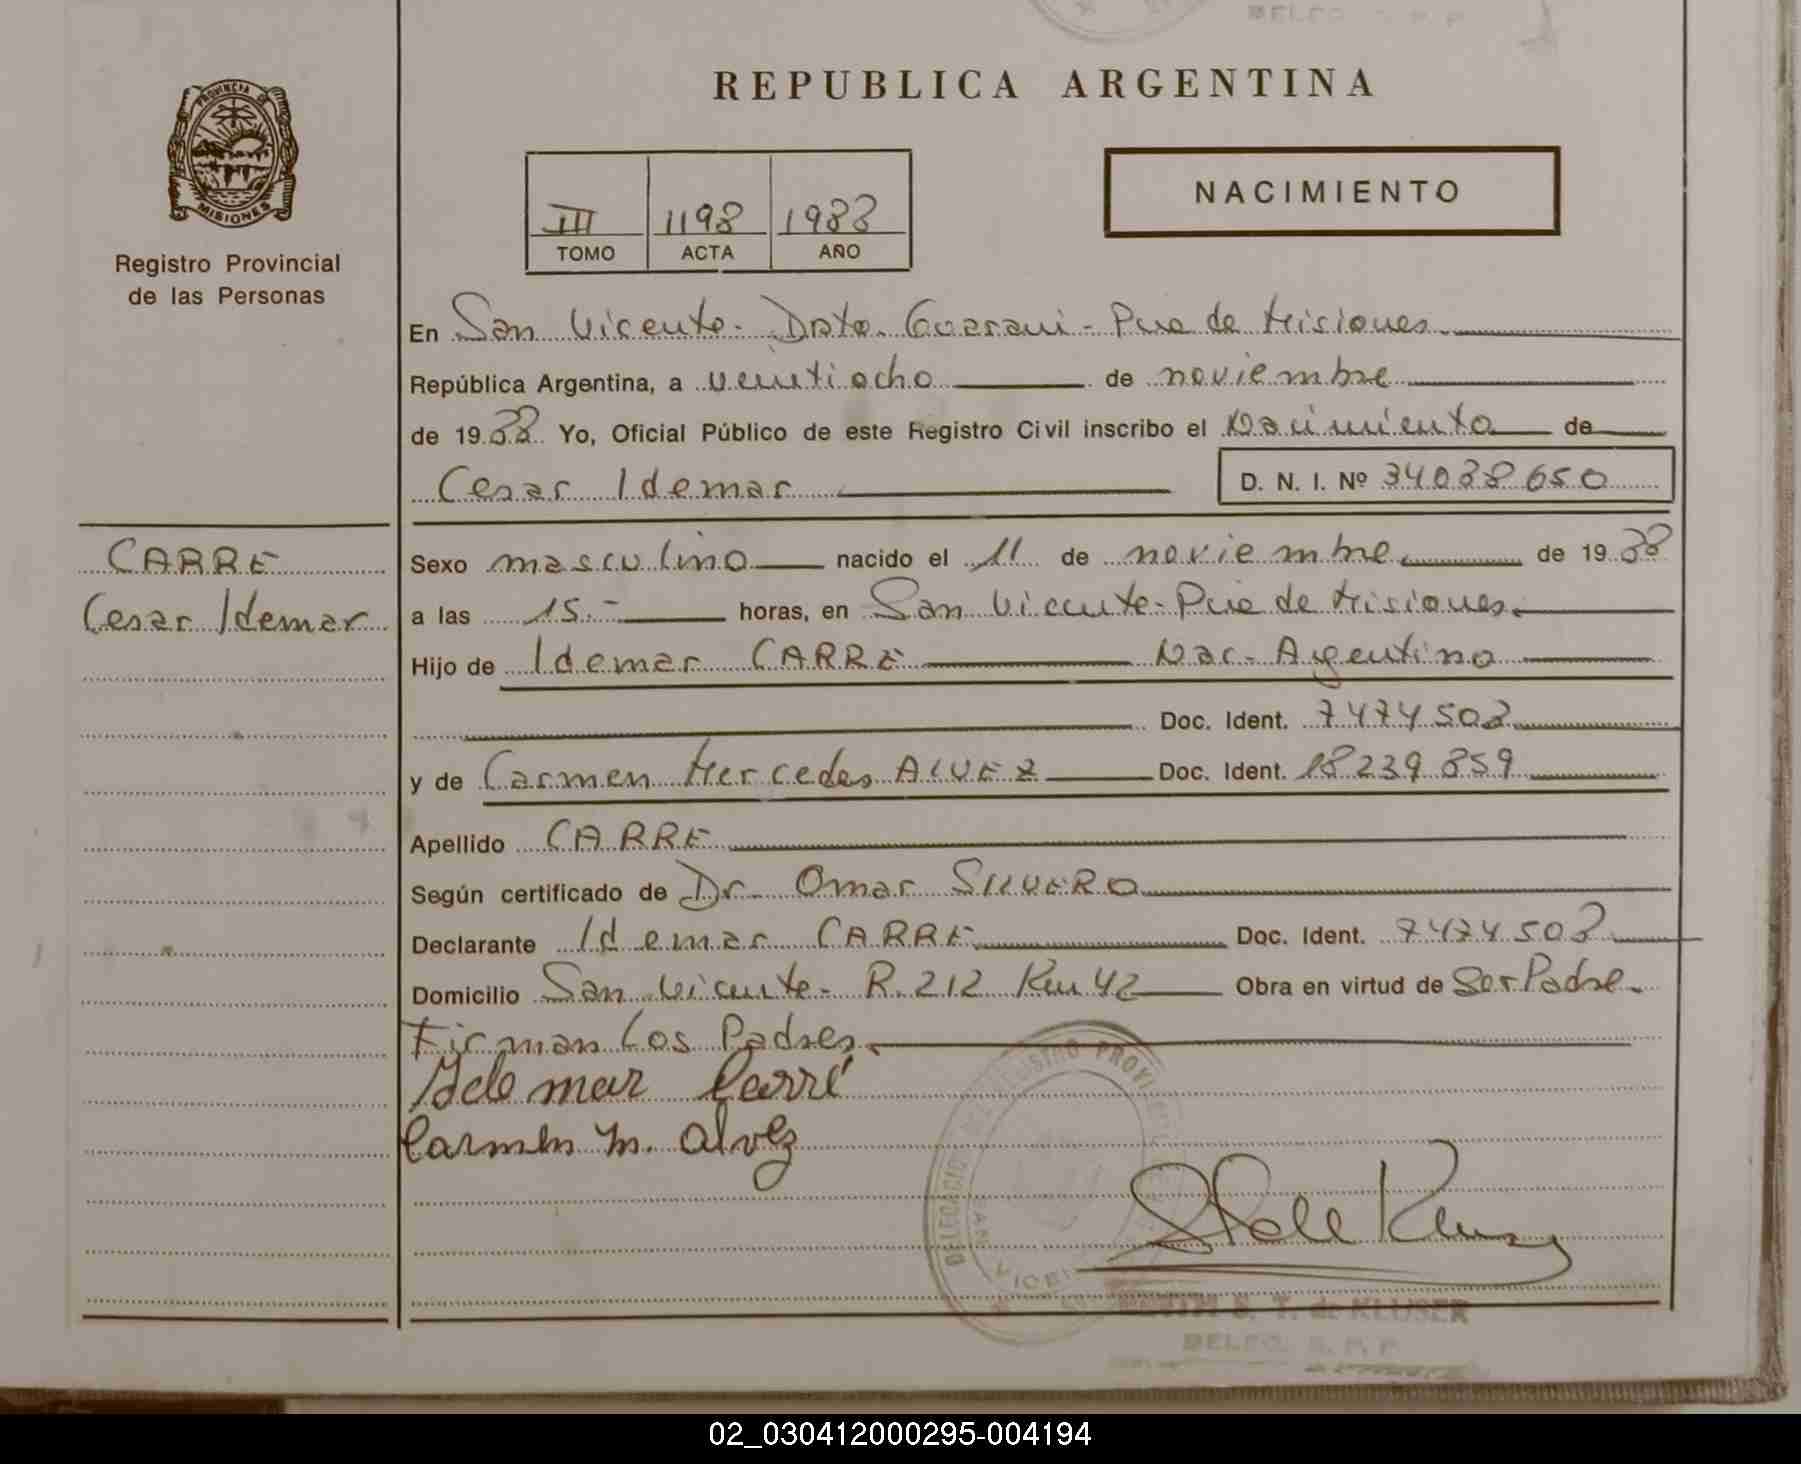 REPUBLICA ARGENTINA
PROVINCIA DE
MISIONES
Registro Provincial
de las Personas
III 1198 1988
TOMO ACTA AÑO
NACIMIENTO
En San Vicente - Dpto. Guarani - Pcia de Misiones
República Argentina, a veintiocho de noviembre
de 1988 Yo, Oficial Público de este Registro Civil inscribo el Nacimiento de
Cesar Idemar D. N. I. Nº 34038650
CARRE
Cesar Idemar
Sexo masculino nacido el 11 de noviembre de 1988
a las 15.- horas, en San Vicente - Pcia de Misiones.
Hijo de Idemar CARRE Nac- Argentino
Doc. Ident. 7474503
y de Carmen Mercedes ALVEZ Doc. Ident. 18239859
Apellido CARRE
Según certificado de Dr. Omar SILVERO
Declarante Idemar CARRE Doc. Ident. 7474503
Domicilio San Vicente - R. 212 Km 42 Obra en virtud de Ser Padre.
Firman Los Padres.
Idemar Carré
Carmen M. Alvez
S. T. de KLUSER
02_030412000295-004194